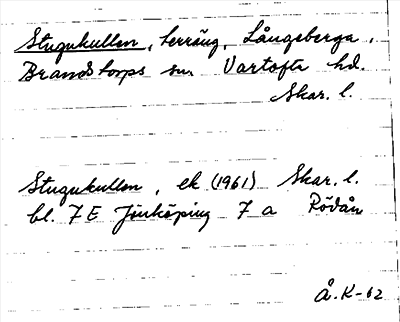 Stugukullen, terräng, Långeberga,
Brandstorps sn Vartofta hd.
Skar. l.
Stugukullen, ek (1961) Skar. l.
bl. 7 E Jönköping 7 a Rödån
Å. K-62